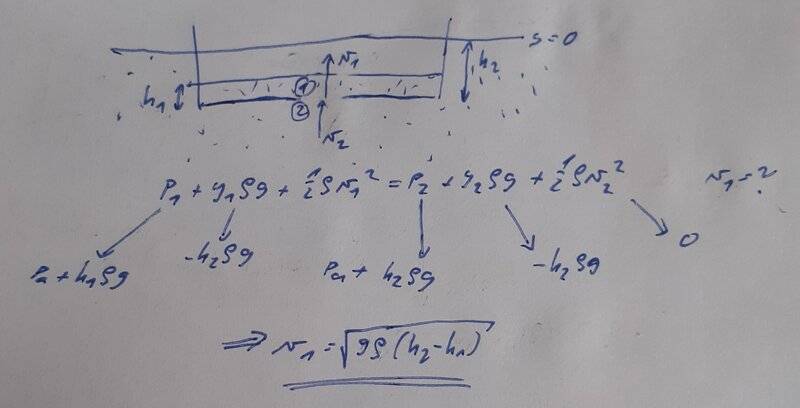 s=0
v₁
h₂
h₁
①
②
v₂
P₁ + y₁ρg + ½ρv₁² = P₂ + y₂ρg + ½ρv₂²
v₁=?
Pa+h₁ρg
-h₂ρg
Pa + h₂ρg
-h₂ρg
0
⇒ v₁ = √gρ(h₂-h₁)